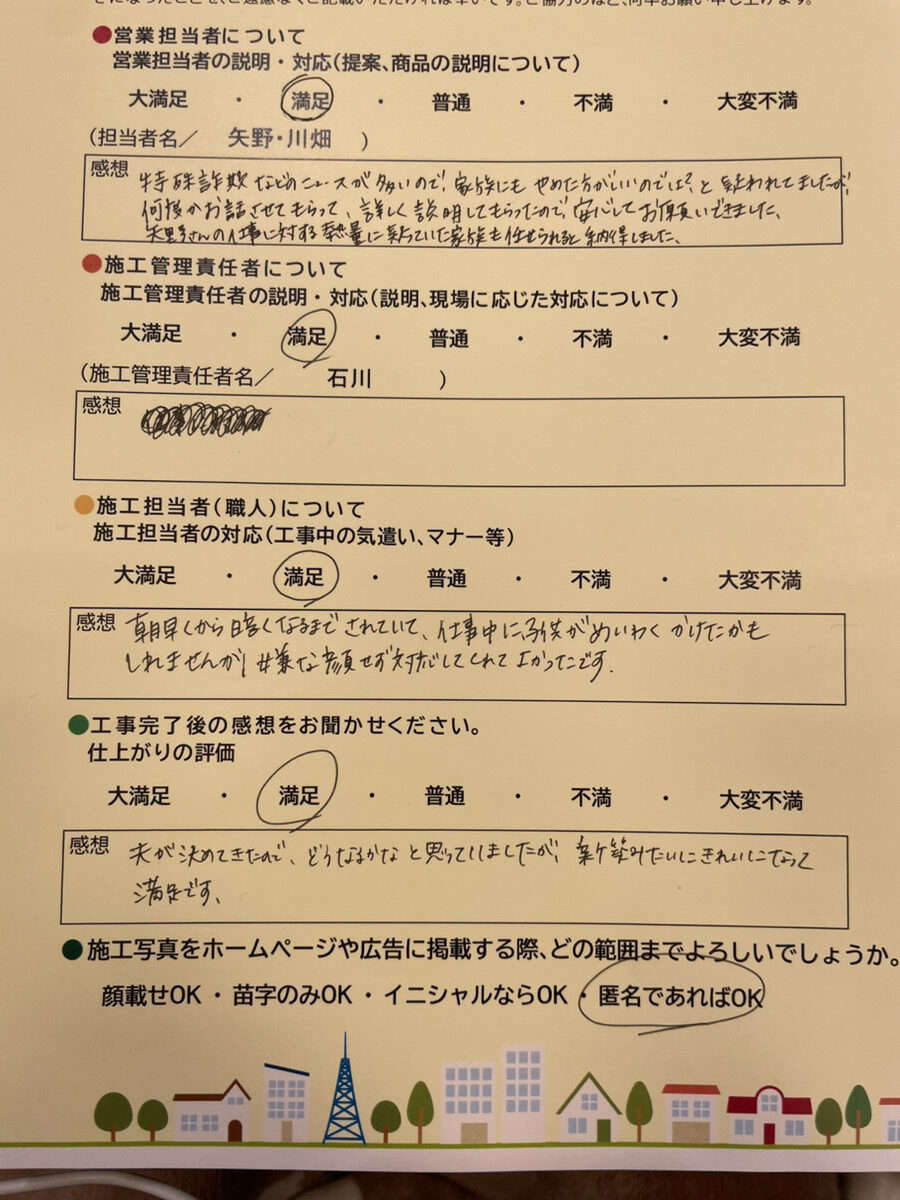 になったことを、ご遠慮なくご記載いただければ幸いです。ご協力のほど、何卒お願い申し上げます。
●営業担当者について
営業担当者の説明・対応(提案、商品の説明について)
大満足 ・ 満足 ・ 普通 ・ 不満 ・ 大変不満
(担当者名／ 矢野・川畑 )
感想
特殊詐欺などのニュースが多いので、家族にもやめた方がいいのでは?と疑われてましたが、
何度かお話させてもらって、詳しく説明してもらったので、安心してお願いできました。
矢野さんの仕事に対する熱量に疑っていた家族も任せられると納得しました。
●施工管理責任者について
施工管理責任者の説明・対応(説明、現場に応じた対応について)
大満足 ・ 満足 ・ 普通 ・ 不満 ・ 大変不満
(施工管理責任者名／ 石川 )
感想
●施工担当者(職人)について
施工担当者の対応(工事中の気遣い、マナー等)
大満足 ・ 満足 ・ 普通 ・ 不満 ・ 大変不満
感想
朝早くから暗くなるまでされていて、仕事中に、子供がめいわくかけたかも
しれませんが、嫌な顔せず対応してくれてよかったです.
●工事完了後の感想をお聞かせください。
仕上がりの評価
大満足 ・ 満足 ・ 普通 ・ 不満 ・ 大変不満
感想
夫が決めてきたので、どうなるかなと思っていましたが、新築みたいにきれいになって
満足です。
●施工写真をホームページや広告に掲載する際、どの範囲までよろしいでしょうか。
顔載せOK ・ 苗字のみOK ・ イニシャルならOK ・ 匿名であればOK